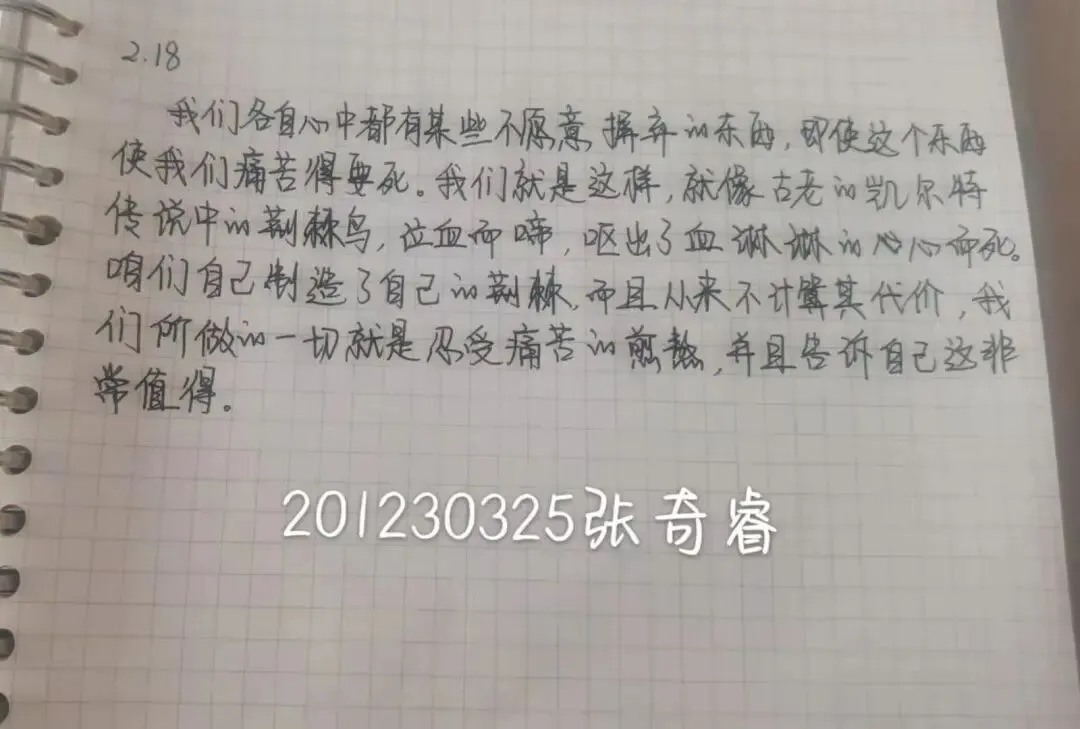 2.18
我们各自心中都有某些不愿意摒弃的东西,即使这个东西
使我们痛苦得要死。我们就是这样,就像古老的凯尔特
传说中的荆棘鸟,泣血而啼,呕出了血淋淋的心心而死。
咱们自己制造了自己的荆棘,而且从来不计算其代价,我
们所做的一切就是忍受痛苦的煎熬,并且告诉自己这非
常值得。
201230325张奇睿